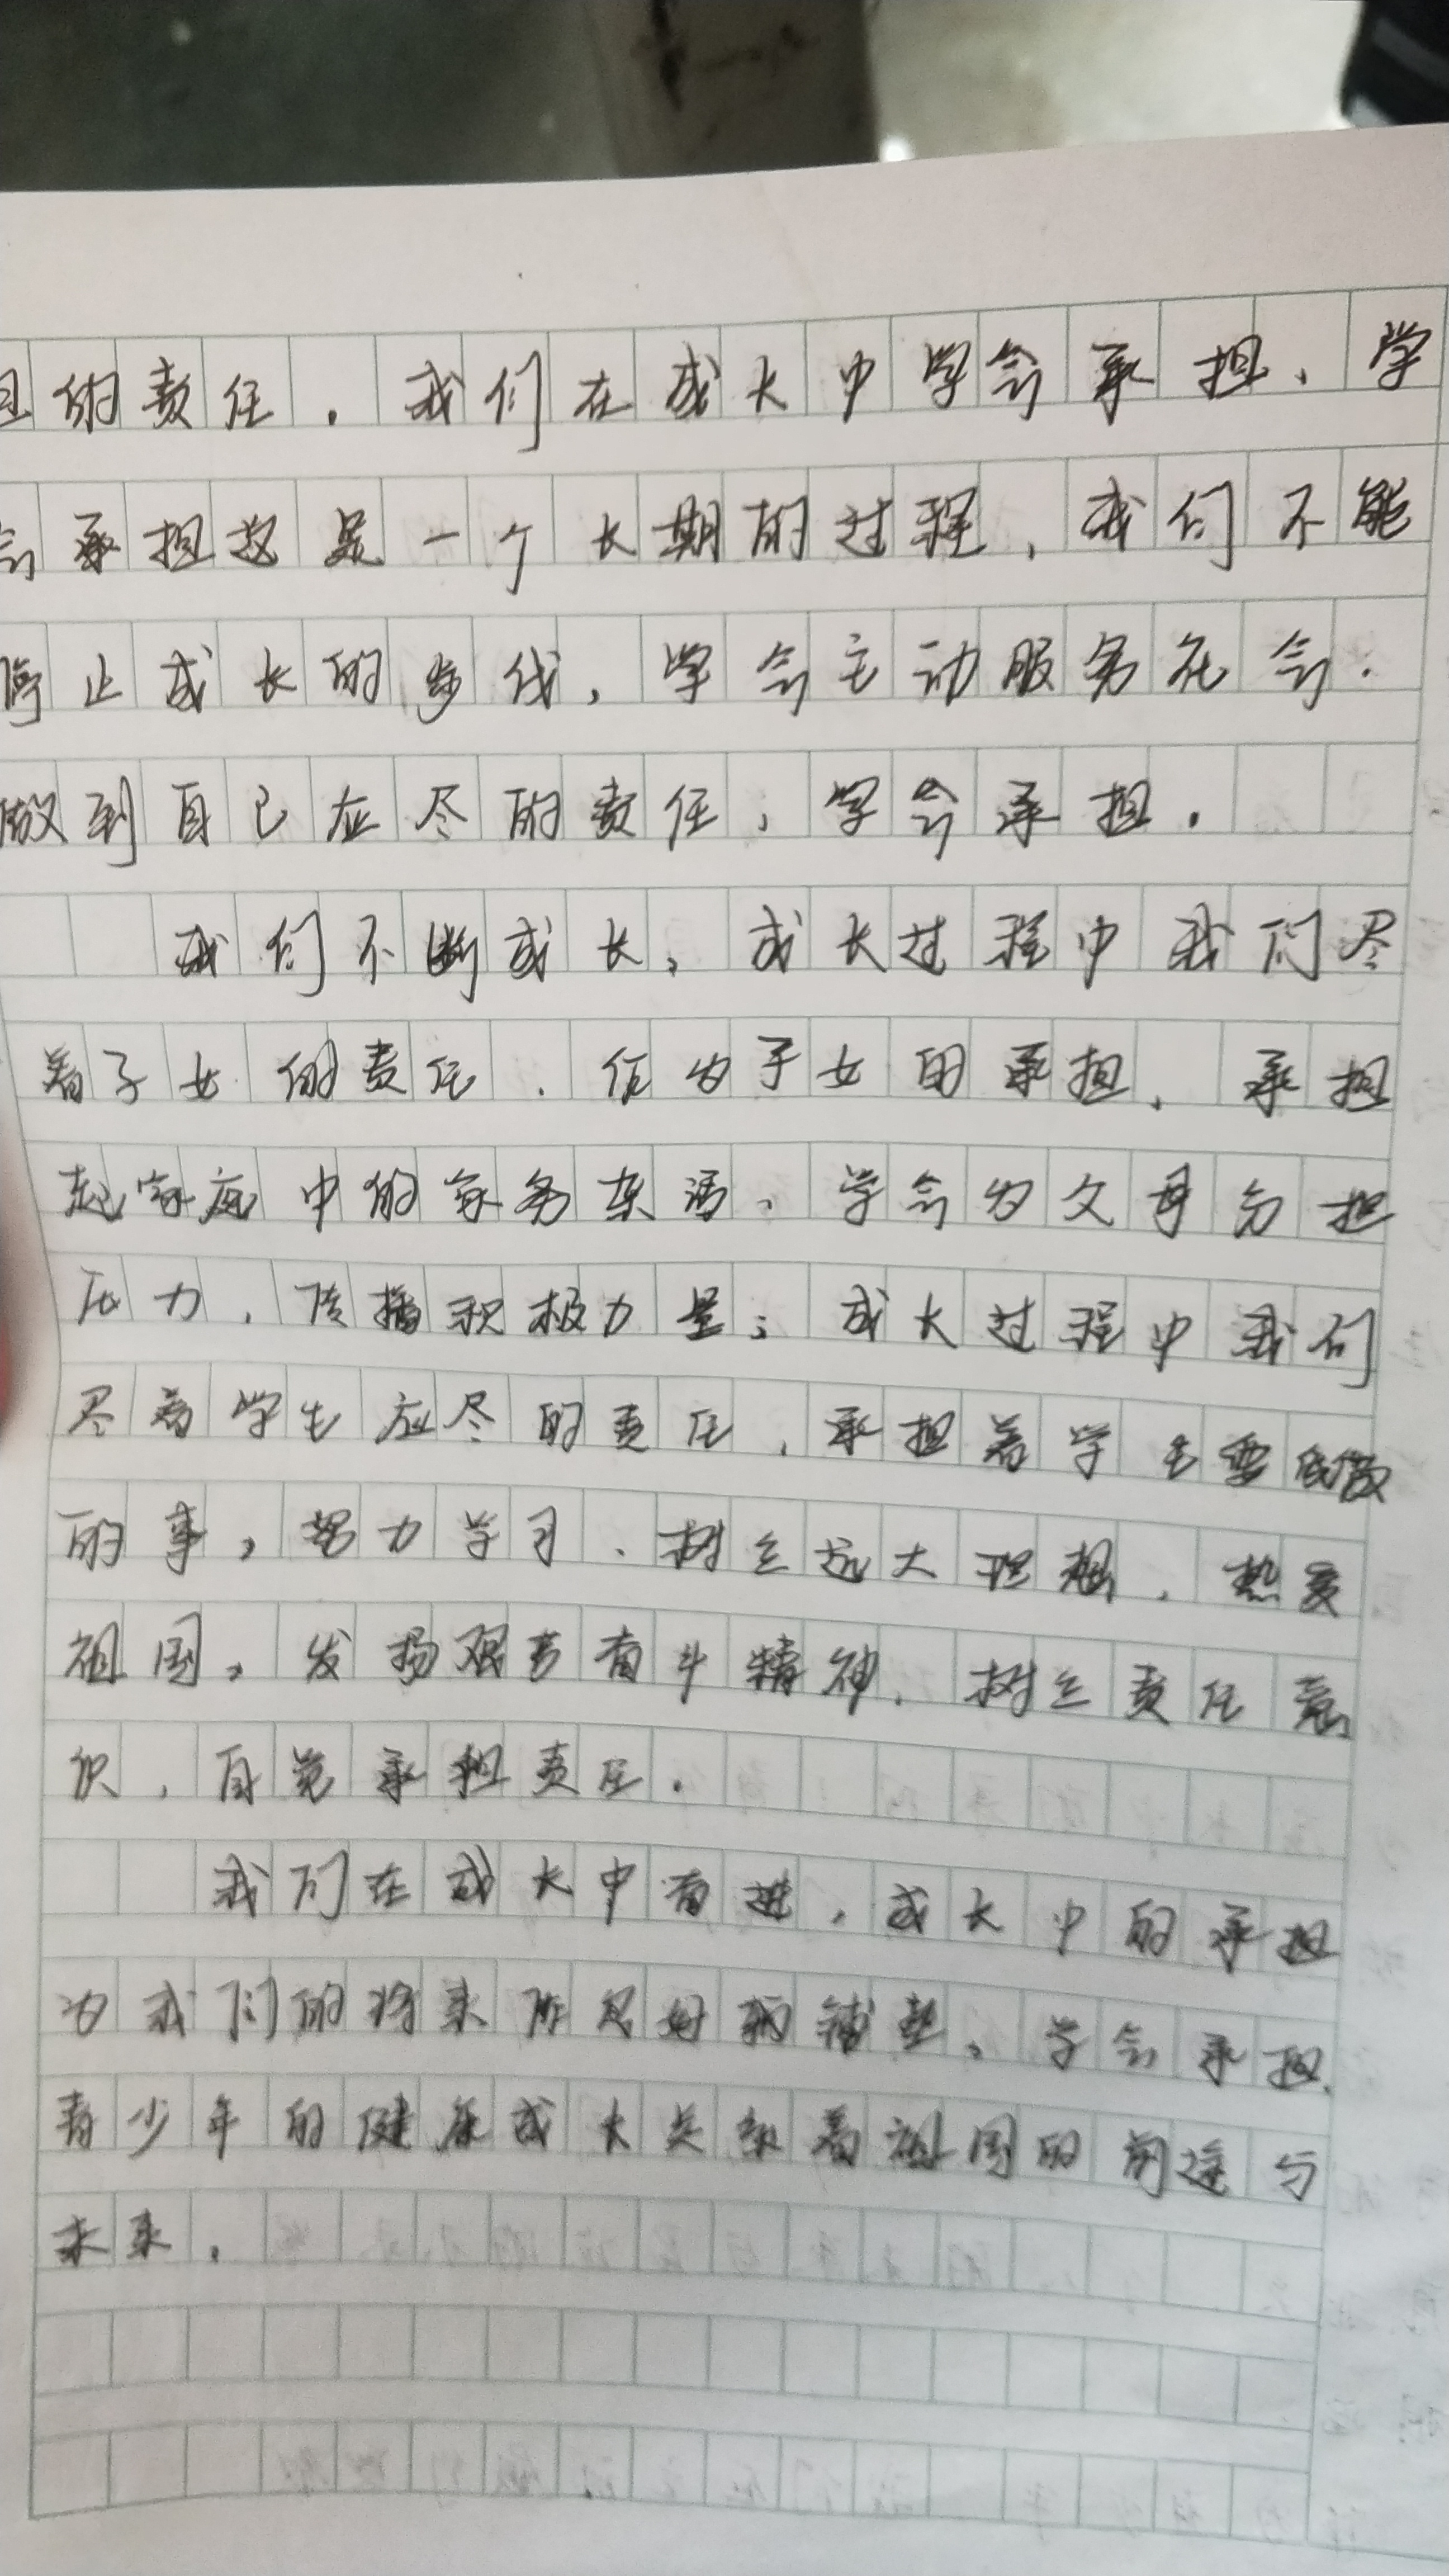 担的责任.我们在成长中学会承担、学
会承担这是一个长期的过程,我们不能
停止成长的步伐,学会主动服务社会.
做到自己应尽的责任,学会承担.
我们不断成长,成长过程中我们尽
着子女的责任.作为子女的承担,承担
起家庭中的家务东活,学会为父母分担
压力,传播积极力量;成长过程中我们
尽着学生应尽的责任,承担着学生要做
的事,努力学习、树立远大理想,热爱
祖国,发扬艰苦奋斗精神,树立责任意
识,自觉承担责任.
我们在成长中奋进,成长中的承担
为我们的将来作良好的铺垫,学会承担.
青少年的健康成长关系着祖国的前途与
未来.